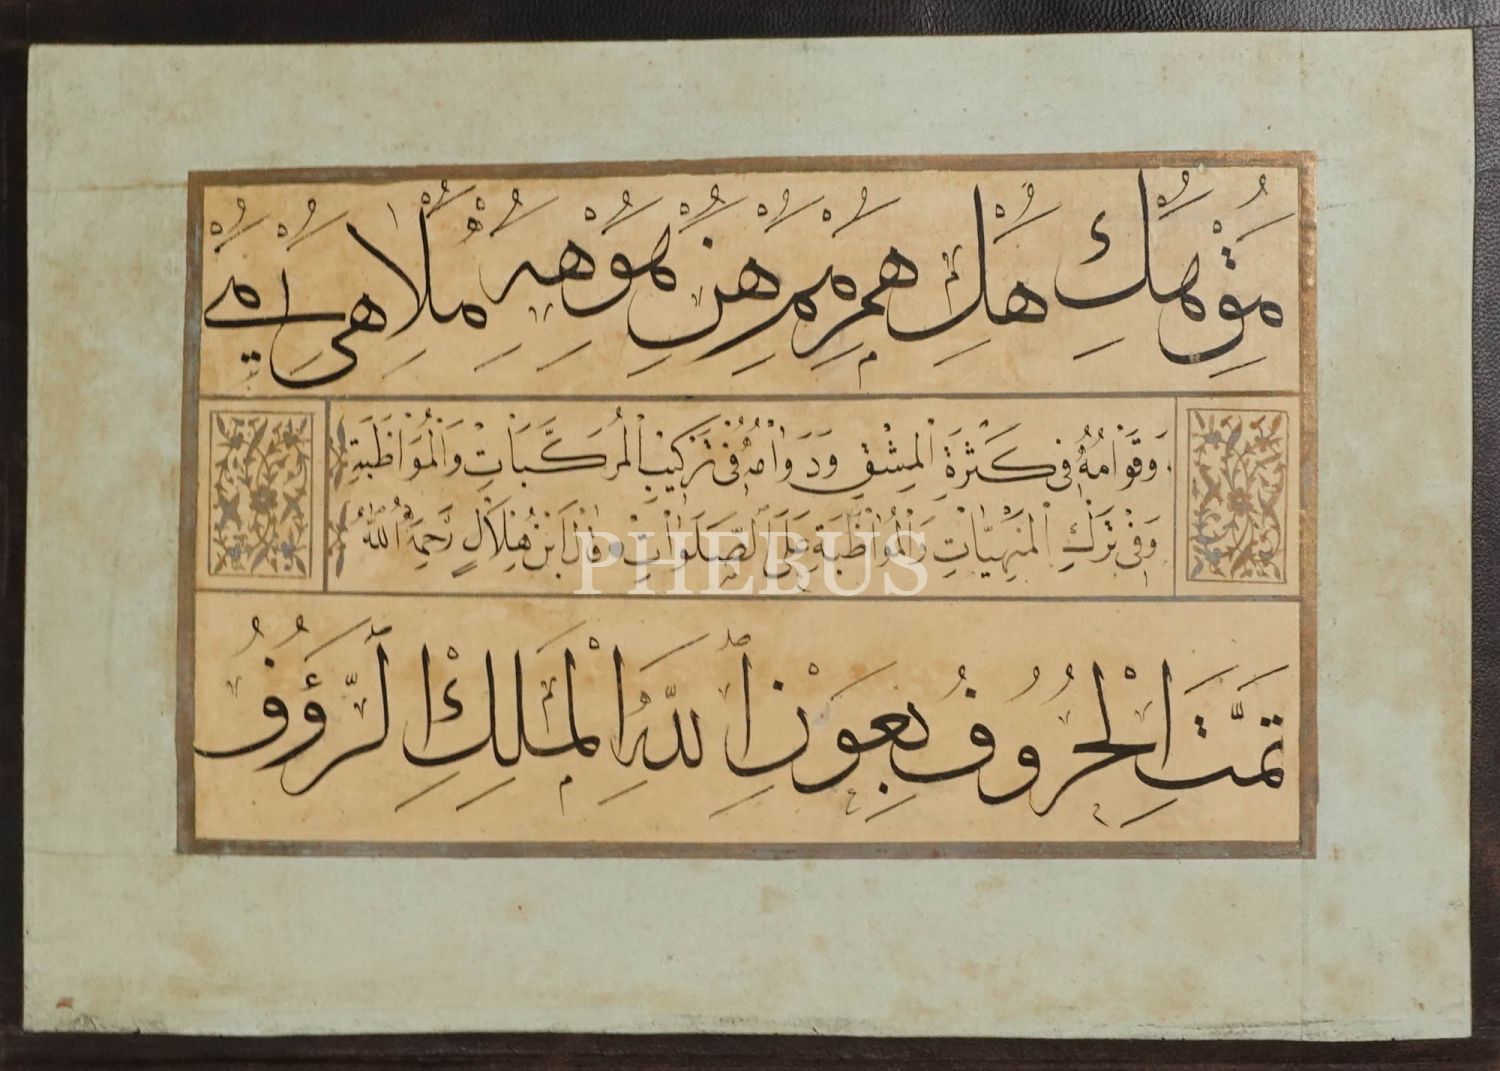 مق هل هم مم هن هه ملا هى مے
وَقَوَامُهُ فِى كَثْرَةِ الْمِشْقِ وَدَوَامُهُ فِى تَرْكِيْبِ الْمُرَكَّبَاتِ وَالْمُوَاظَبَةِ
وَفِى تَرْكِ الْمَنْهِيَّاتِ وَالْمُوَاظَبَةِ عَلَى الصَّلَوَاتِ قَالَ ابْنُ هِلَالٍ رَحِمَهُ اللّٰهُ
PHEBUS
تَمَّتِ الْحُرُوفُ بِعَوْنِ اللّٰهِ الْمَلِكِ الرَّؤُفُ